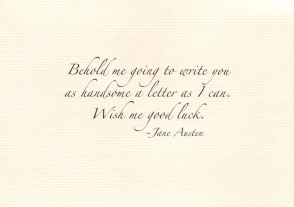 Behold me going to write you
as handsome a letter as I can.
Wish me good luck.
~Jane Austen